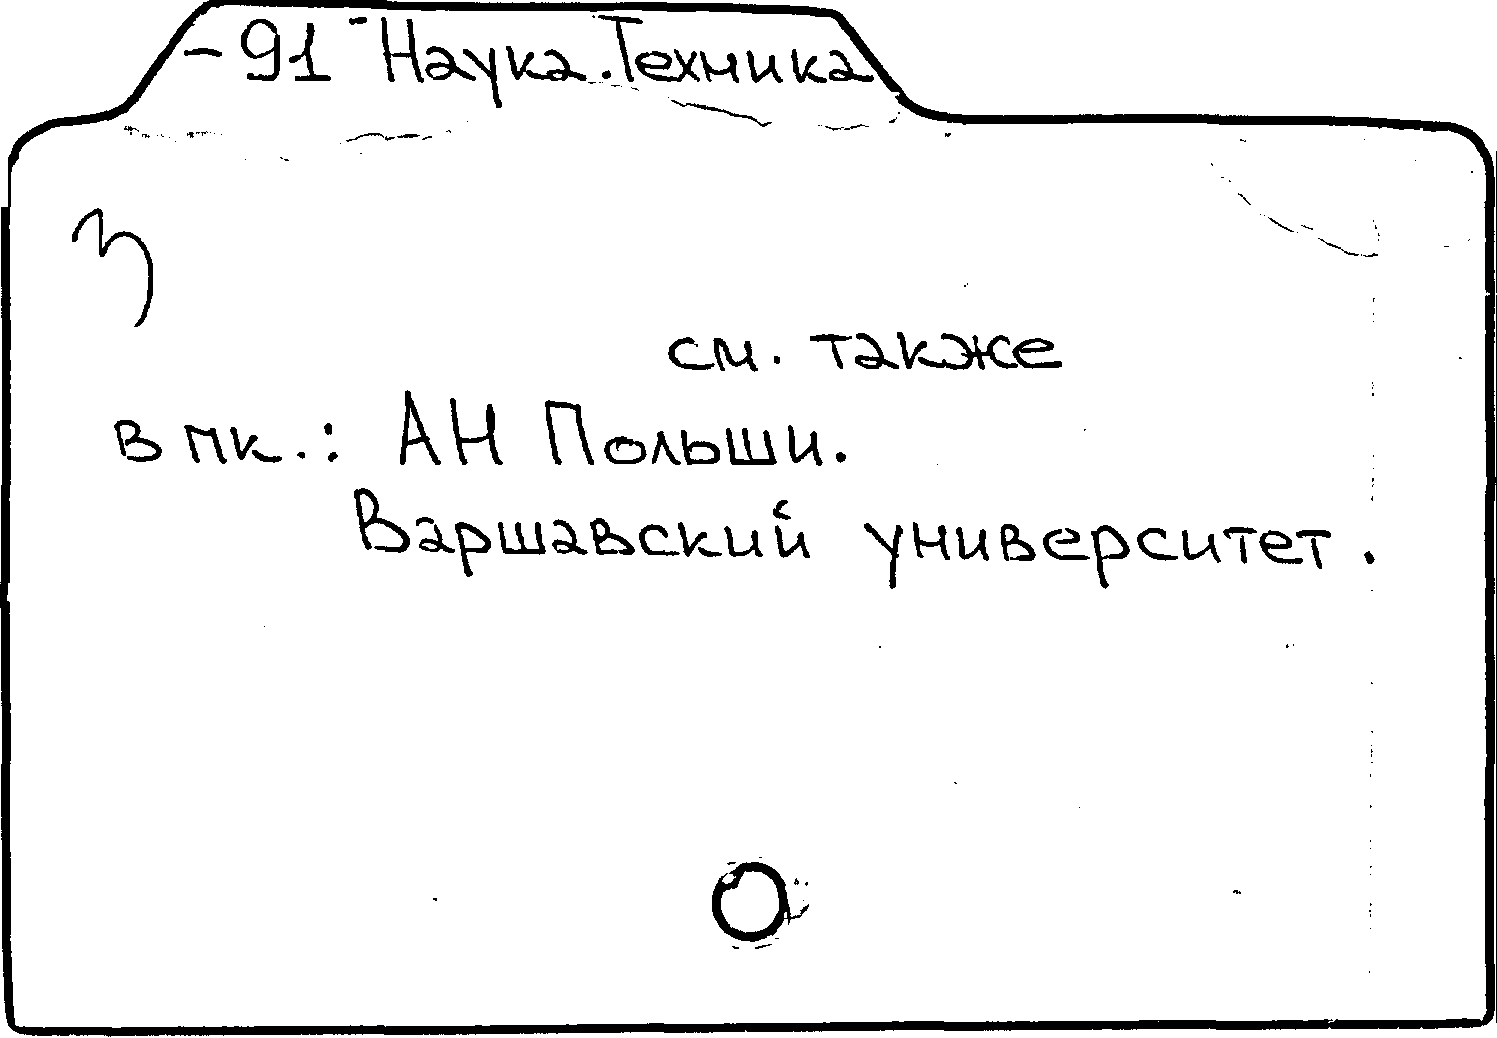 -91 Наука. Техника
З
см. также
в пк.: АН Польши.
Варшавский университет.